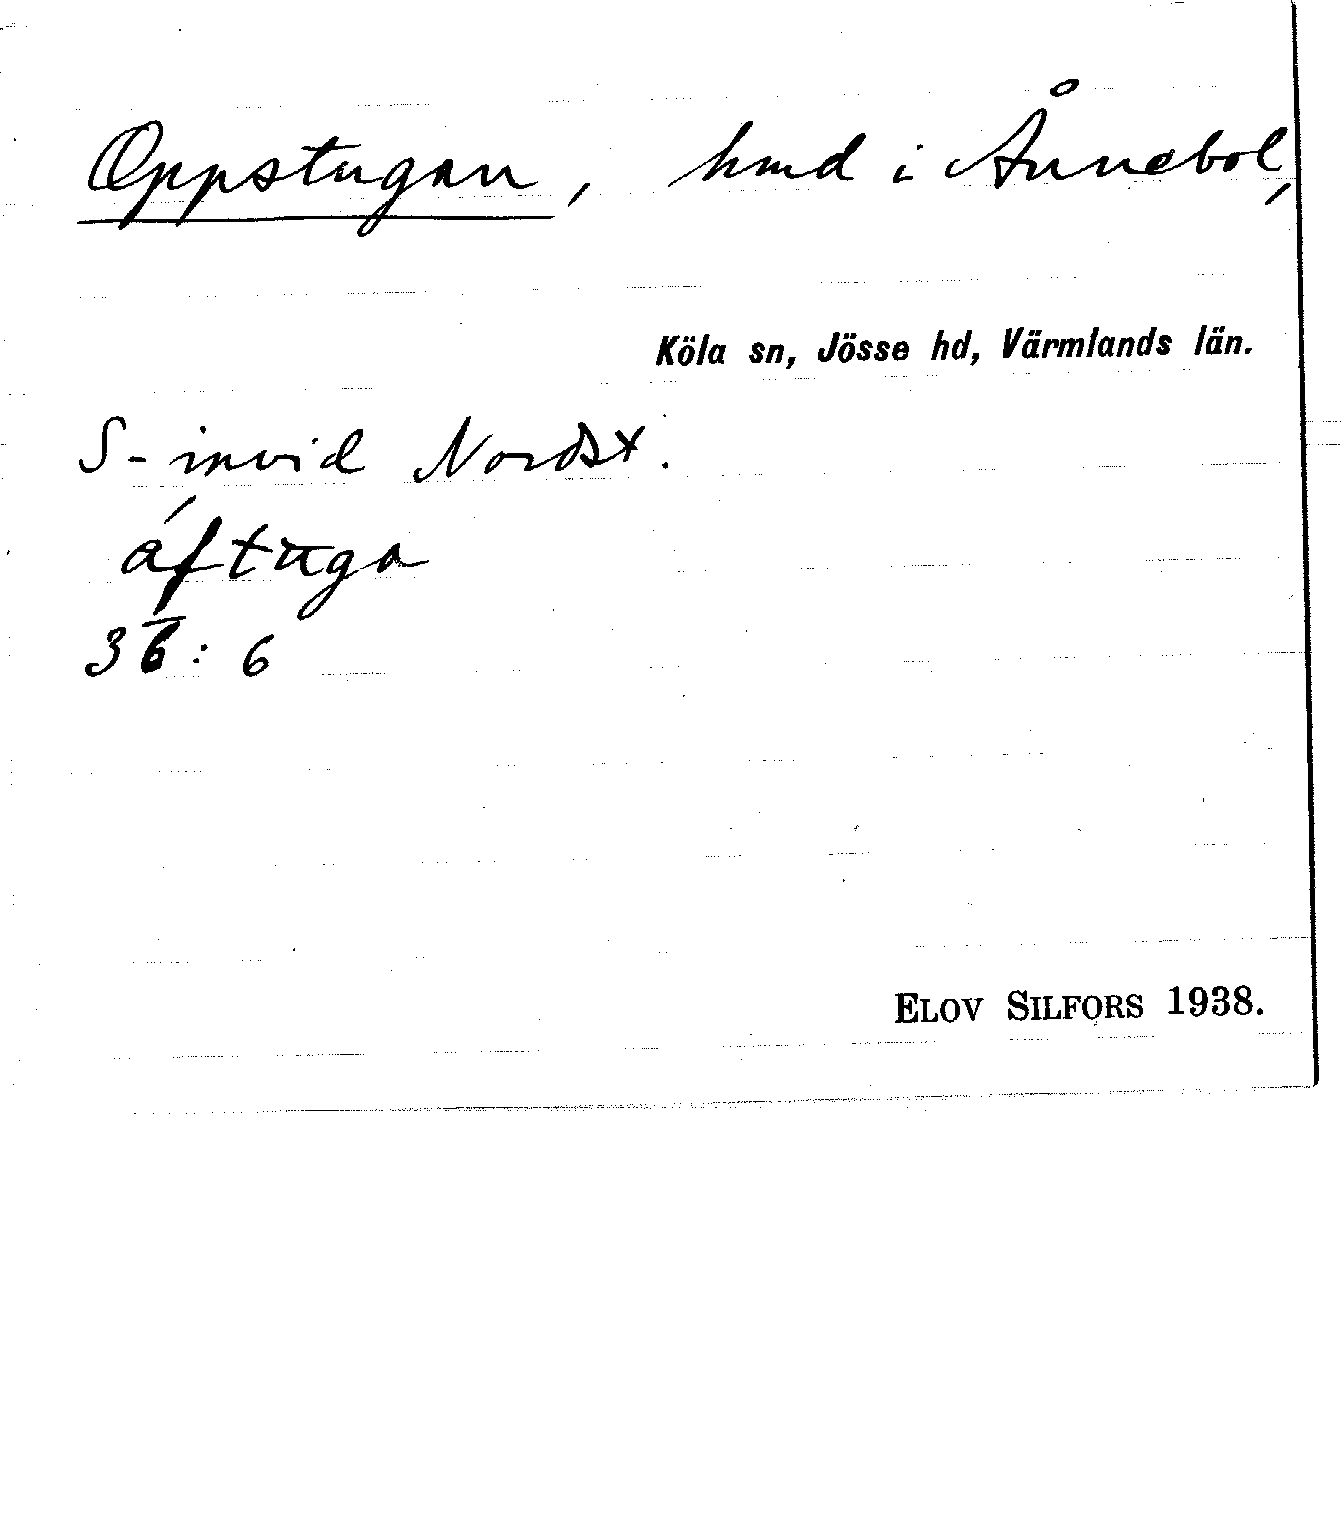 Oppstugan, hmd i Ånnebol,
Köla sn, Jösse hd, Värmlands län.
S-invid Nordst.
áftuga
36: 6
ELOV SILFORS 1938.